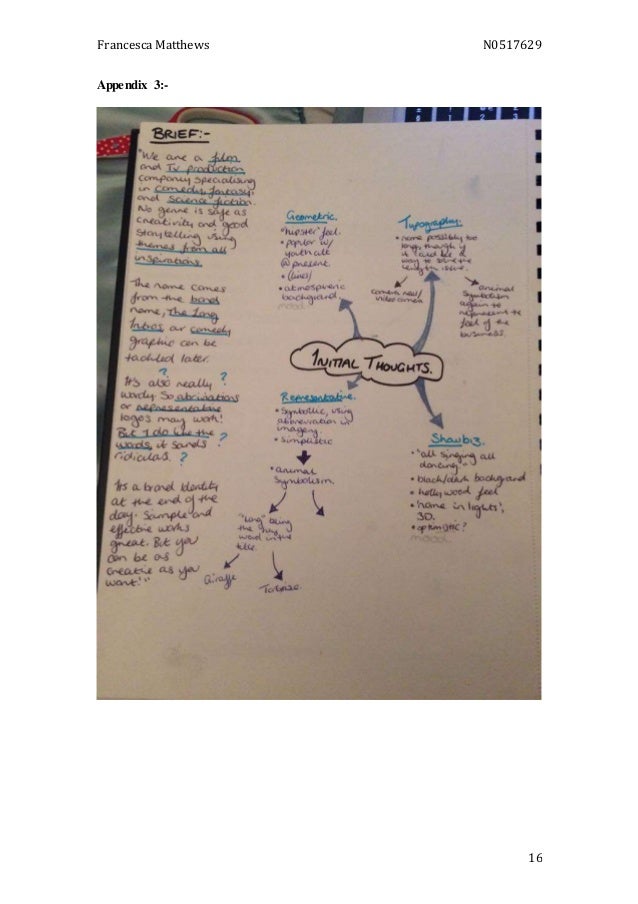 Francesca Matthews N0517629
Appendix 3:-
BRIEF:-
"We are a film
and TV production
company specialising
in comedy, fantasy
and science fiction.
No genre is safe as
creativity and good
storytelling using
themes from all
inspirations.
The name comes
from the band
name, The Long
Intros, our comedy
graphic can be
tackled later.
?
It's also really ?
wordy. So abbreviations
or representative
logos may work!
But I do like the
words, it sounds ?
ridiculas. ?
Its a brand Identity
at the end of the
day. Sample and
effective works
great. But you
can be as
creative as you
want!"
Geometric.
"hipster" feel.
• popular w/
youth cult
@ present.
• (lines)
• atmospheric
background.
mood.
Typography.
• name possibly too
long, though if
it could be a
way to solve the
length issue.
camera reel/
video camera
animal
symbolism
again to
represent the
feel of the
business.
INITIAL THOUGHTS.
Representative.
• Symbollic, using
abbreviation in
imagery.
• simplistic
• animal
Symbolism.
"Long" being
the key
word in the
title.
Giraffe
Tortoise.
Showbiz.
• "all singing all
dancing"
• black/dark background
• hollywood feel
• 'name in lights',
3D.
• optimistic?
mood
16